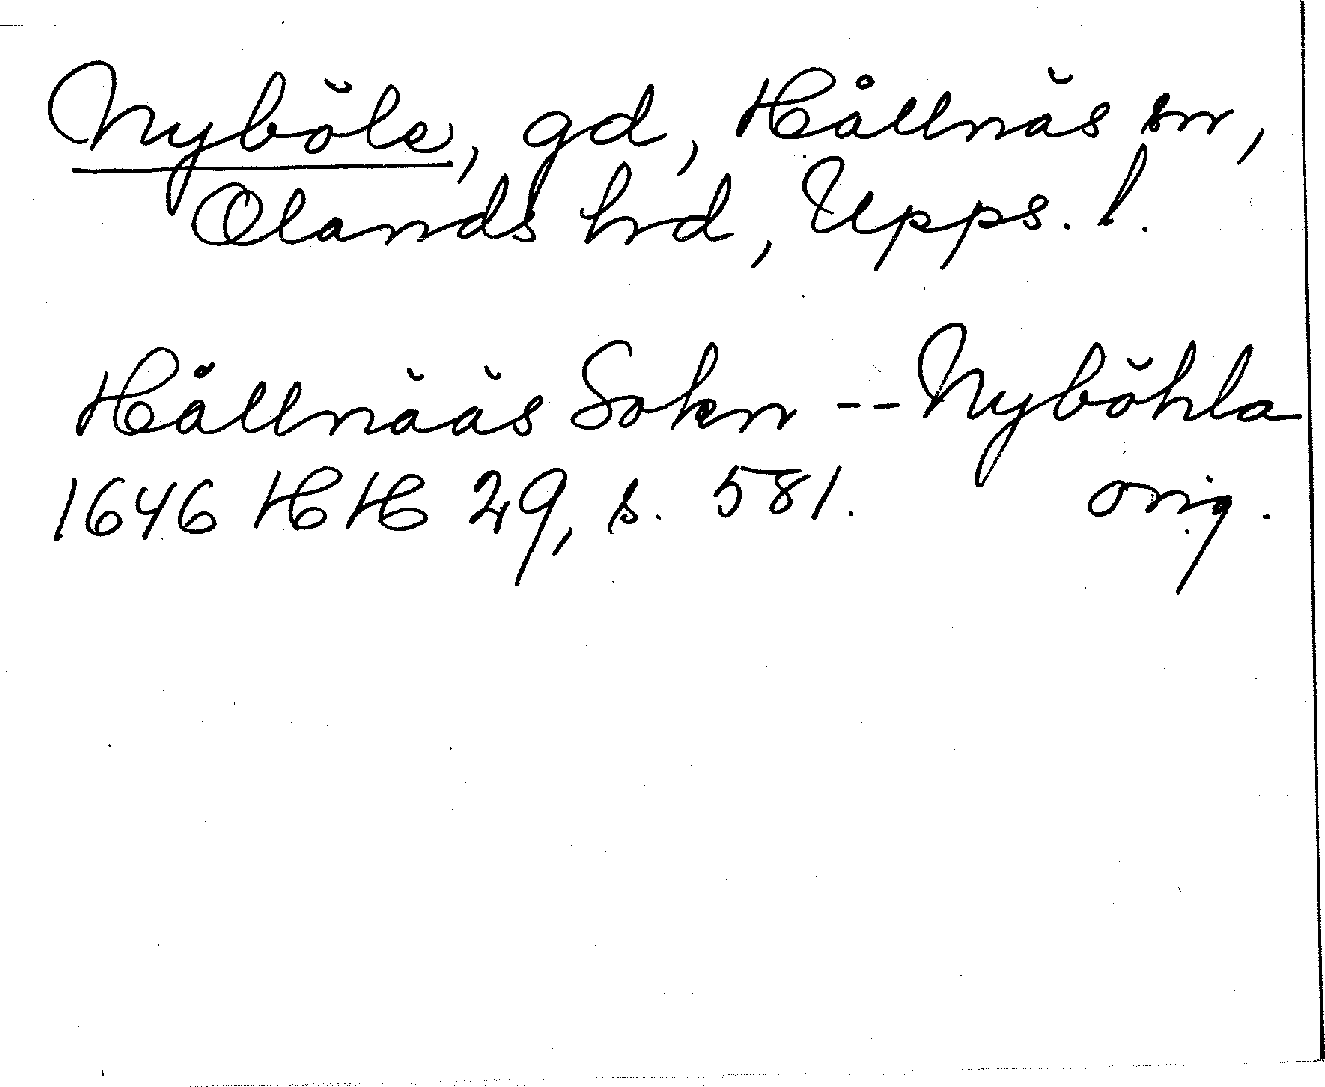 Nyböle, gd, Hållnäs sn,
Olands hrd, Upps. l.
Hållnääs Sokn -- Nyböhla
1646 HH 29, s. 581. orig.